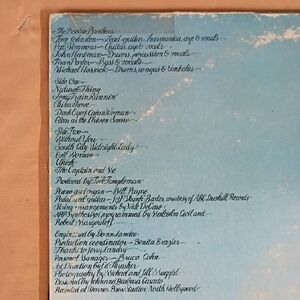 The Doobie Brothers
Tom Johnston - Lead guitar, harmonica, arp & vocals
Pat Simmons - Guitar, arp & vocals
John Hartman - Drums, percussion & vocals
Tiran Porter - Bass & vocals
Michael Hossack - Drums, congas & timbales
Side One
Natural Thing
Long Train Runnin'
China Grove
Dark Eyed Cajun Woman
Clear as the Driven Snow
Side Two
Without You
South City Midnight Lady
Evil Woman
Ukiah
The Captain and Me
Produced by Ted Templeman
Piano and organ - Bill Payne
Pedal steel guitar - Jeff Skunk Baxter, courtesy of ABC Dunhill Records
String arrangements by Nick DeCaro
ARP Synthesizers programmed by Malcolm Cecil and
Robert Margouleff
Engineered by Donn Landee
Production coordinator - Benita Brazier
Thanks to Jerry Landry
Personal Manager - Bruce Cohn
Art Direction by Ed Thrasher
Photography by Michael and Jill Maggid
Designed by John and Barbara Casado
Recorded at Warner Bros. Studios North Hollywood